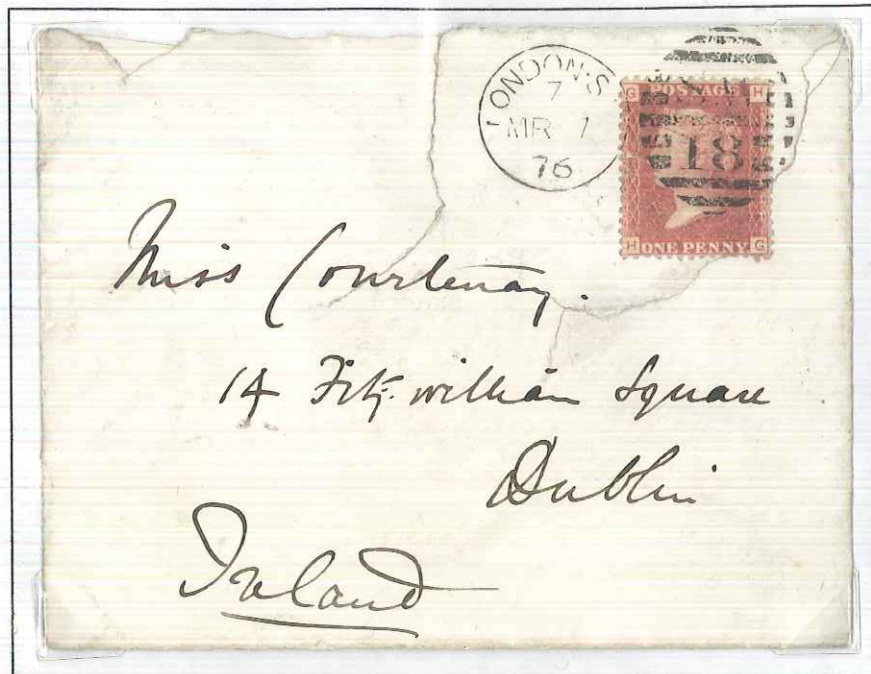 LONDON·S
7
MR 1
76
G POSTAGE H
18
H ONE PENNY G
Miss Courtenay.
14 Fitz-william Square
Dublin
Ireland